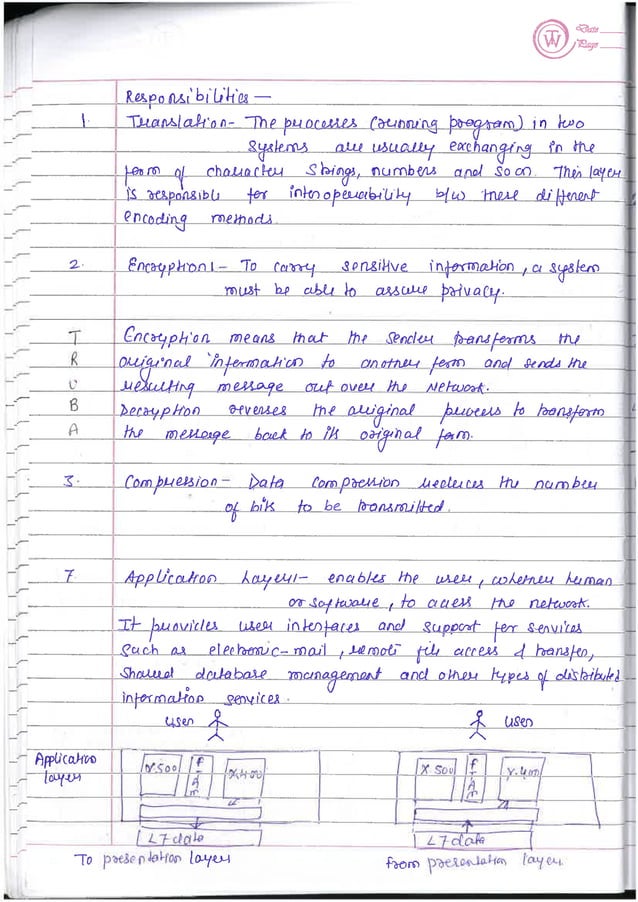 TW
Date
Page
Responsibilities —
1. Translation - The processes (running program) in two
systems are usually exchanging in the
form of character strings, numbers and so on. This layer
is responsible for interoperability b/w these different
encoding methods.
2. Encryption :- To carry sensitive information, a system
must be able to assure privacy.
T Encryption means that the sender transforms the
R original information to another form and sends the
U resulting message out over the network.
B Decryption reverses the original process to transform
A the message back to its original form.
3. Compression - Data compression reduces the number
of bits to be transmitted.
7. Application Layer :- enables the user, whether human
or software, to access the network.
It provides user interfaces and support for services
such as electronic-mail, remote file access & transfer,
shared database management and other types of distributed
information services.
user user
Application
layer
X.500 FTAM X.400
X 500 FTAM X.400
L7 data L7 data
To presentation layer from presentation layer